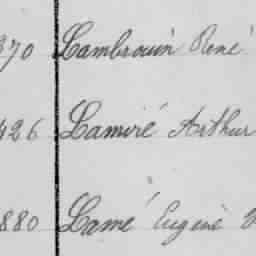 370 Lambrouin René
426 Lamiré Arthur
880 Lamé Eugène